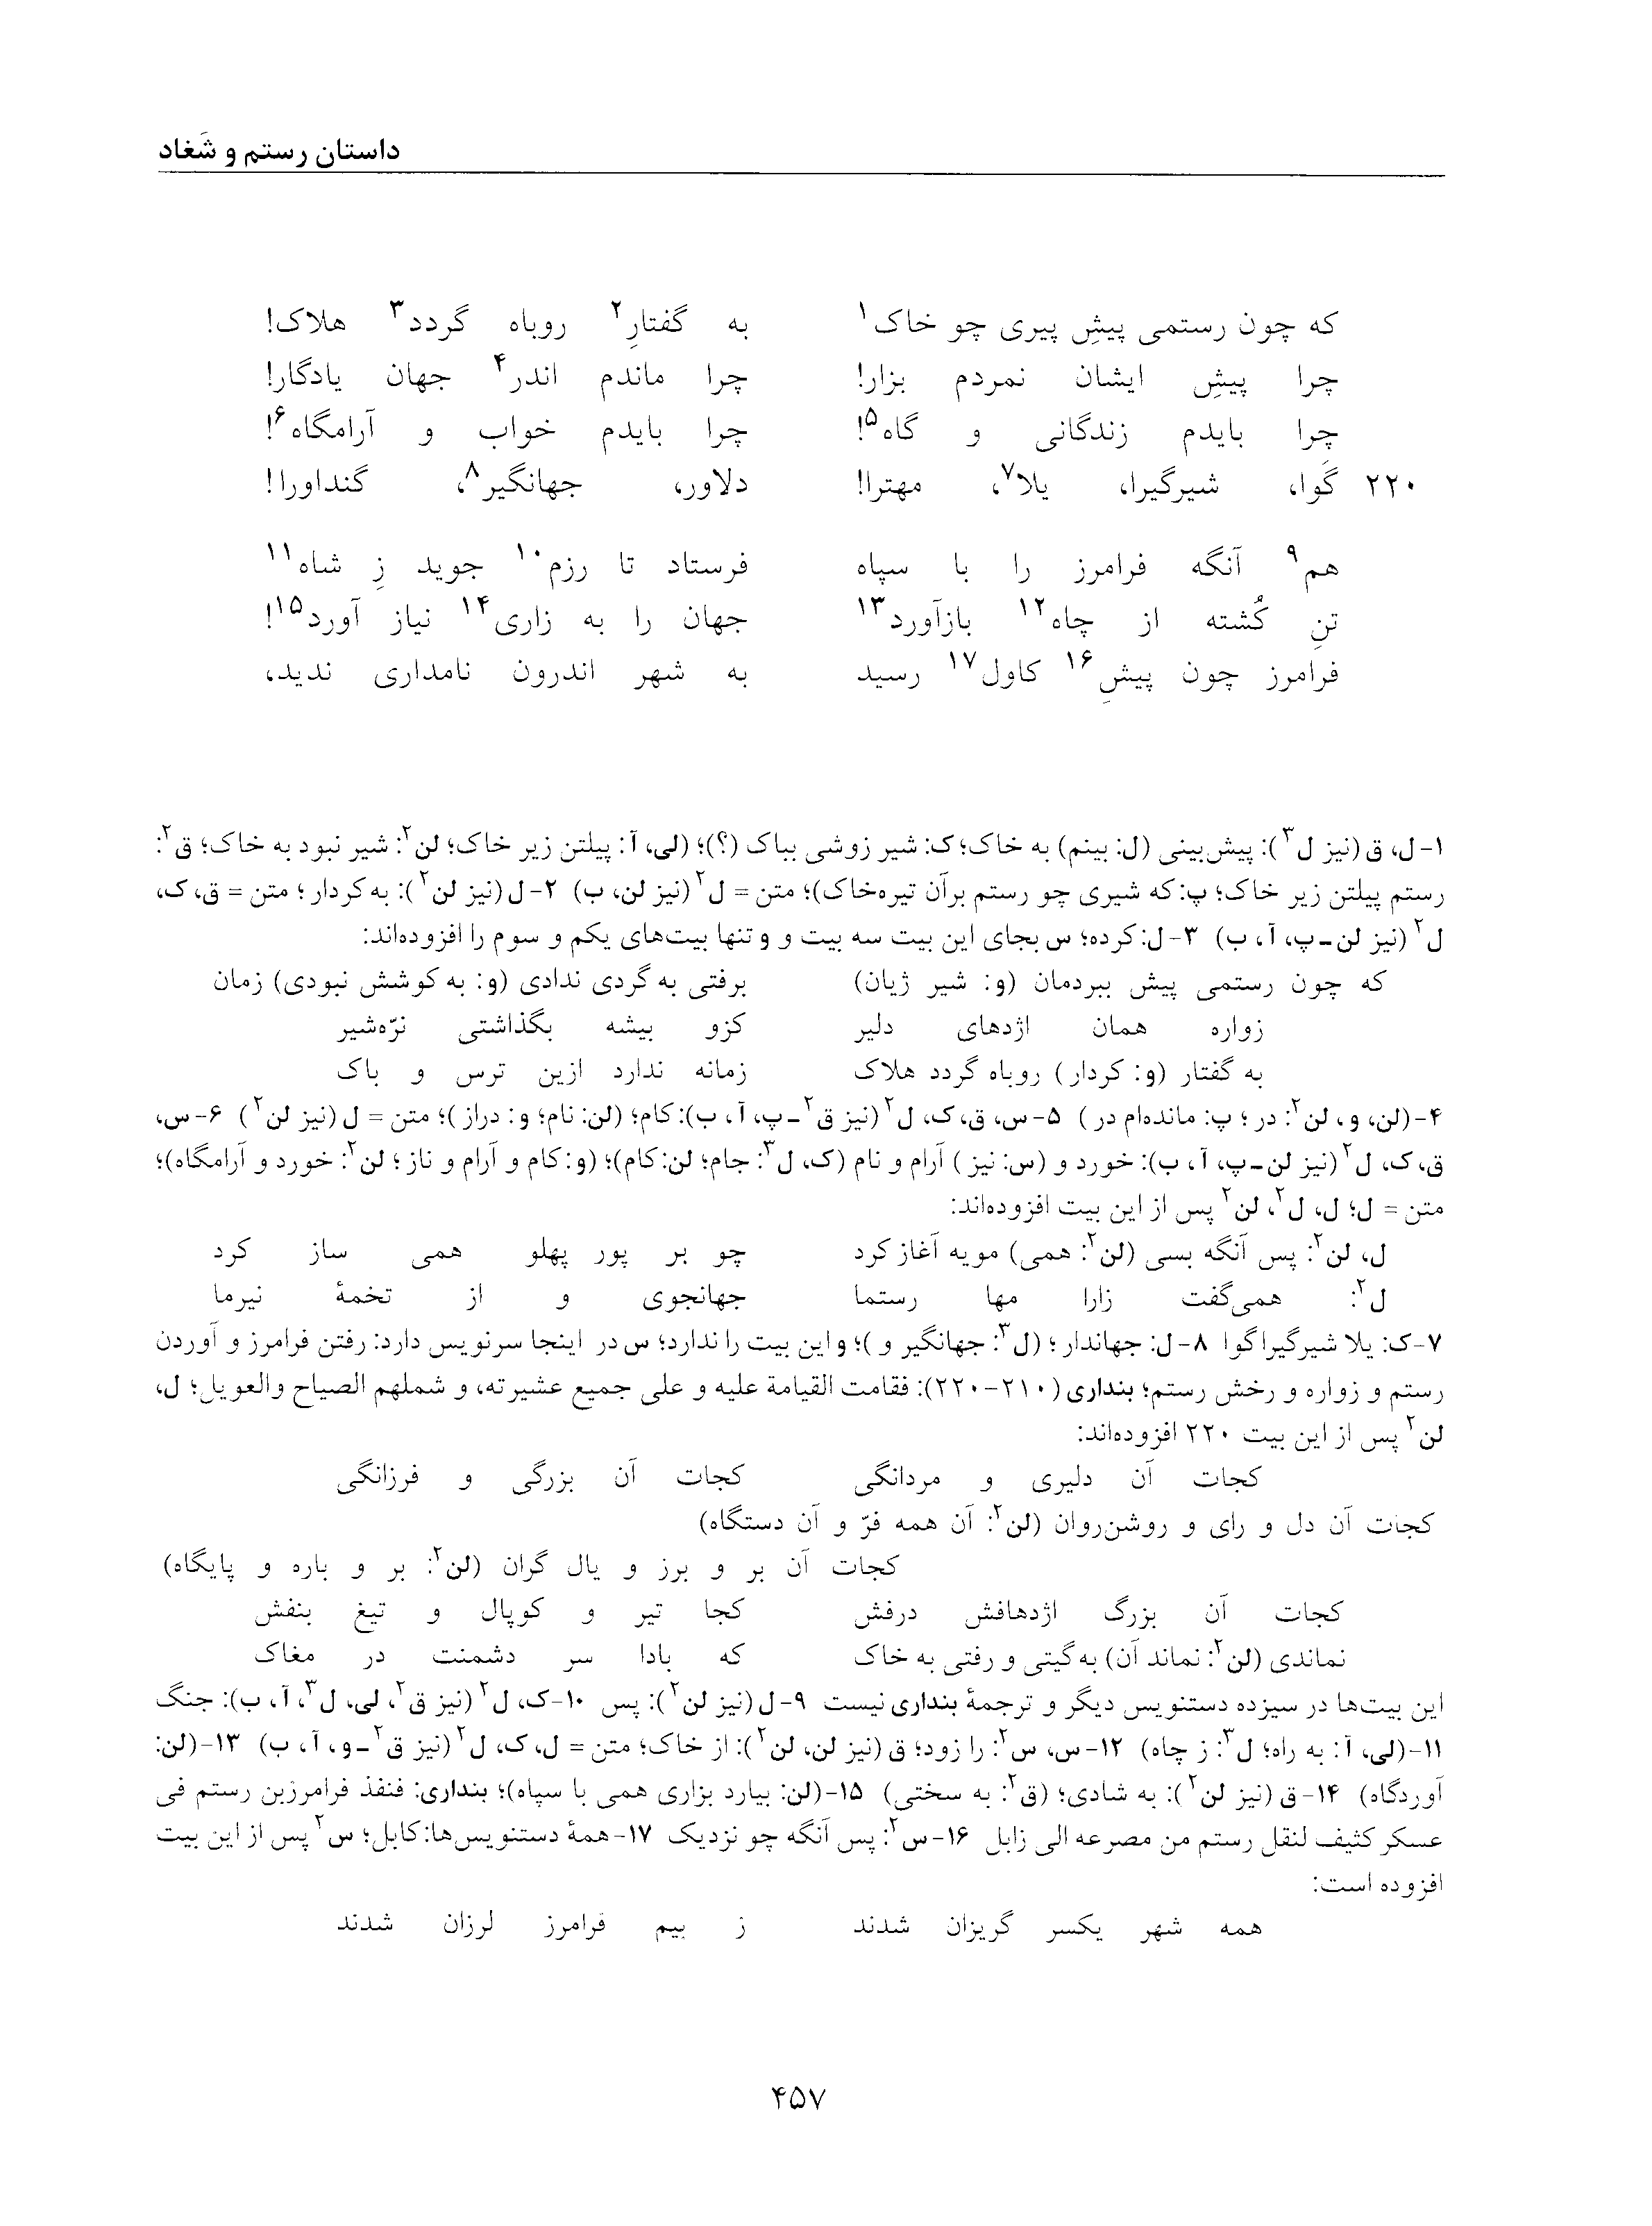 داستان رستم و شَغاد
که چون رستمی پیشِ پیری چو خاک۱ به گفتارِ۲ روباه گردد۳ هلاک!
چرا پیشِ ایشان نمردم بزار! چرا ماندم اندر۴ جهان یادگار!
چرا بایدم زندگانی و گاه۵! چرا بایدم خواب و آرامگاه۶!
۲۲۰ گَوا، شیرگیرا، یلا۷، مهترا! دلاور، جهانگیر۸، گنداورا!
هم۹ آنگه فرامرز را با سپاه فرستاد تا رزم۱۰ جوید زِ شاه۱۱
تنِ کُشته از چاه۱۲ بازآورد۱۳ جهان را به زاری۱۴ نیاز آورد۱۵!
فرامرز چون پیشِ۱۶ کاول۱۷ رسید به شهر اندرون نامداری ندید،
۱-ل، ق (نیز ل۳): پیش‌بینی (ل: بینم) به خاک؛ ک: شیر زوشی بباک (؟)؛ (لی، آ: پیلتن زیر خاک؛ لن۲: شیر نبود به خاک؛ ق۲:
رستم پیلتن زیر خاک؛ پ: که شیری چو رستم برآن تیره‌خاک)؛ متن = ل۲ (نیز لن، ب) ۲-ل (نیز لن۲): به کردار؛ متن = ق، ک،
ل۲ (نیز لن-پ، آ، ب) ۳-ل: کرده؛ س بجای این بیت سه بیت و و تنها بیت‌های یکم و سوم را افزوده‌اند:
که چون رستمی پیش ببردمان (و: شیر ژیان) برفتی به گردی ندادی (و: به کوشش نبودی) زمان
زواره همان اژدهای دلیر کزو بیشه بگذاشتی نرّه‌شیر
به گفتار (و: کردار) روباه گردد هلاک زمانه ندارد ازین ترس و باک
۴-(لن، و، لن۲: در؛ پ: مانده‌ام در) ۵-س، ق، ک، ل۲ (نیز ق۲-پ، آ، ب): کام؛ (لن: نام؛ و: دراز)؛ متن = ل (نیز لن۲) ۶-س،
ق، ک، ل۲ (نیز لن-پ، آ، ب): خورد و (س: نیز) آرام و نام (ک، ل۳: جام؛ لن: کام)؛ (و: کام و آرام و ناز؛ لن۲: خورد و آرامگاه)؛
متن = ل؛ ل، ل۲، لن۲ پس از این بیت افزوده‌اند:
ل، لن۲: پس آنگه بسی (لن۲: همی) مویه آغاز کرد چو بر پور پهلو همی ساز کرد
ل۲: همی‌گفت زارا مها رستما جهانجوی و از تخمهٔ نیرما
۷-ک: یلا شیرگیرا گوا ۸-ل: جهاندار؛ (ل۳: جهانگیر و)؛ و این بیت را ندارد؛ س در اینجا سرنویس دارد: رفتن فرامرز و آوردن
رستم و زواره و رخش رستم؛ بنداری (۲۱۰-۲۲۰): فقامت القیامة علیه و علی جمیع عشیرته، و شملهم الصیاح والعویل؛ ل،
لن۲ پس از این بیت ۲۲۰ افزوده‌اند:
کجات آن دلیری و مردانگی کجات آن بزرگی و فرزانگی
کجات آن دل و رای و روشن‌روان (لن۲: آن همه فرّ و آن دستگاه)
کجات آن بر و برز و یال گران (لن۲: بر و باره و پایگاه)
کجات آن بزرگ اژدهافش درفش کجا تیر و کوپال و تیغ بنفش
نماندی (لن۲: نماند آن) به گیتی و رفتی به خاک که بادا سر دشمنت در مغاک
این بیت‌ها در سیزده دستنویس دیگر و ترجمهٔ بنداری نیست ۹-ل (نیز لن۲): پس ۱۰-ک، ل۲ (نیز ق۲، لی، ل۳، آ، ب): جنگ
۱۱-(لی، آ: به راه؛ ل۳: ز چاه) ۱۲-س، س۲: را زود؛ ق (نیز لن، لن۲): از خاک؛ متن = ل، ک، ل۲ (نیز ق۲-و، آ، ب) ۱۳-(لن:
آوردگاه) ۱۴-ق (نیز لن۲): به شادی؛ (ق۲: به سختی) ۱۵-(لن: بیارد بزاری همی با سپاه)؛ بنداری: فنفذ فرامرزبن رستم فی
عسکر کثیف لنقل رستم من مصرعه الی زابل ۱۶-س۲: پس آنگه چو نزدیک ۱۷-همهٔ دستنویس‌ها: کابل؛ س۲ پس از این بیت
افزوده است:
همه شهر یکسر گریزان شدند ز بیم فرامرز لرزان شدند
۴۵۷